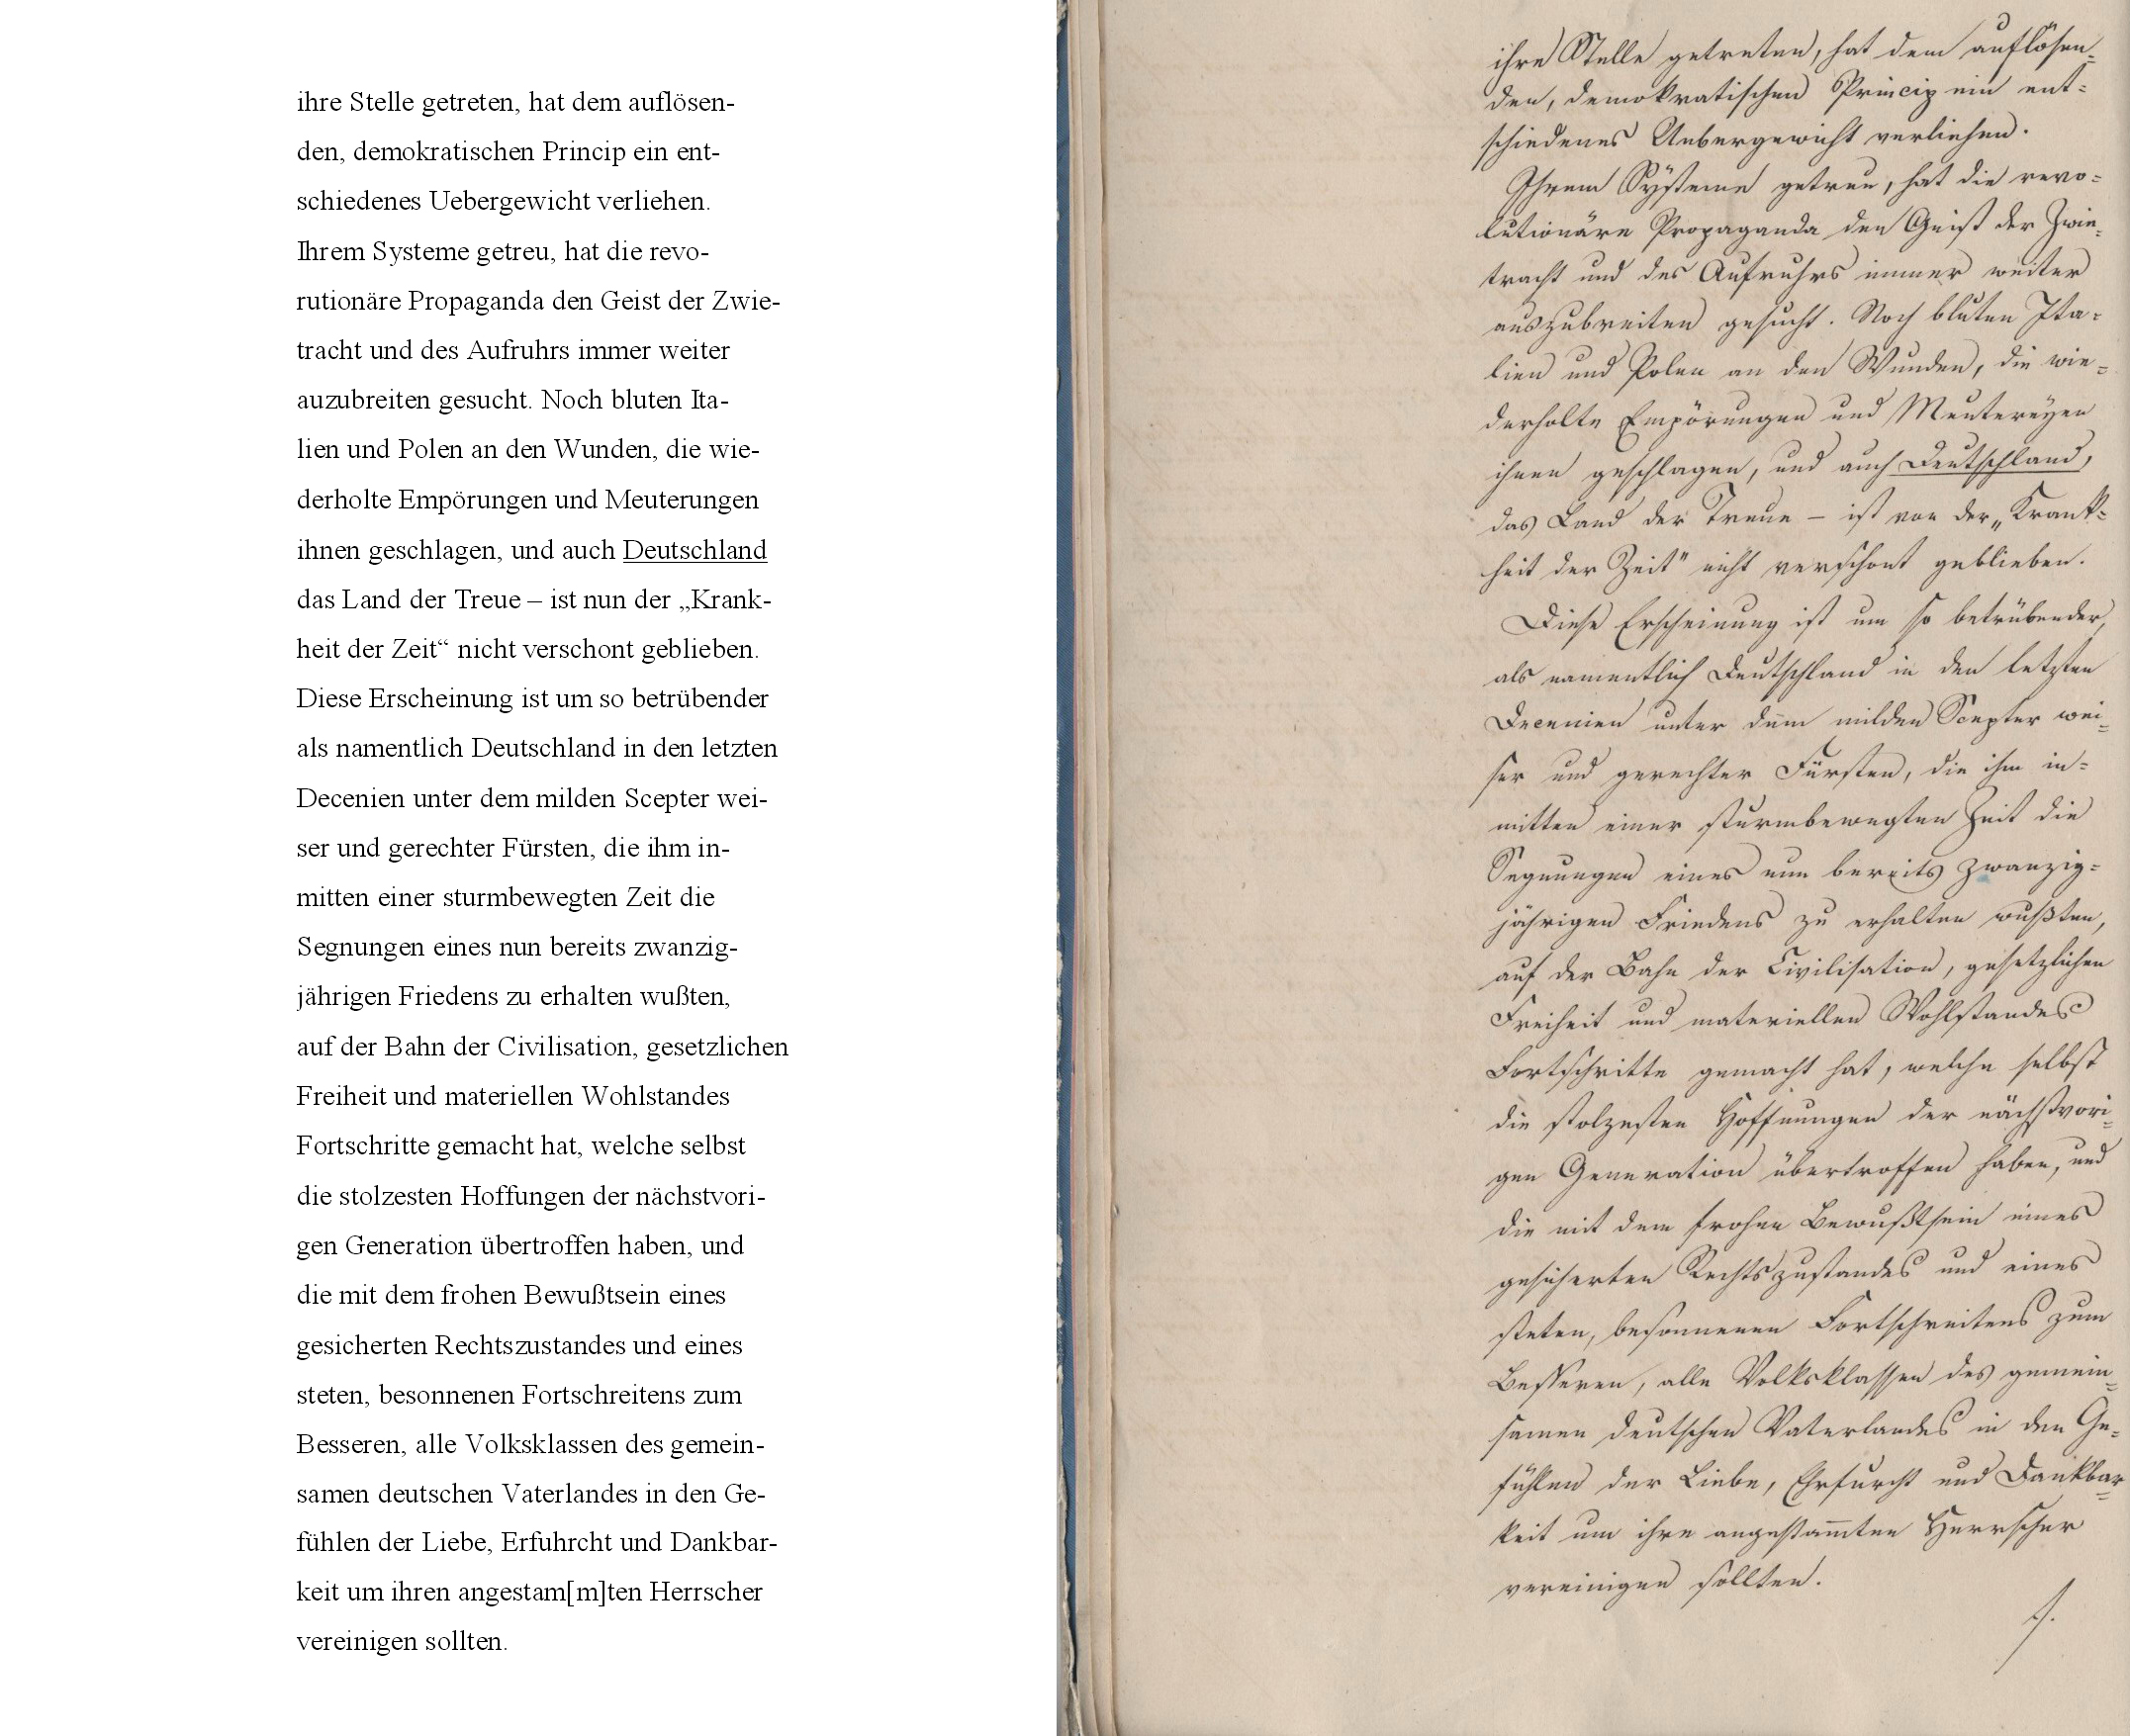 ihre Stelle getreten, hat dem auflösen-
den, demokratischen Princip ein ent-
schiedenes Uebergewicht verliehen.
Ihrem Systeme getreu, hat die revo-
rutionäre Propaganda den Geist der Zwie-
tracht und des Aufruhrs immer weiter
auzubreiten gesucht. Noch bluten Ita-
lien und Polen an den Wunden, die wie-
derholte Empörungen und Meuterungen
ihnen geschlagen, und auch Deutschland
das Land der Treue – ist nun der „Krank-
heit der Zeit“ nicht verschont geblieben.
Diese Erscheinung ist um so betrübender
als namentlich Deutschland in den letzten
Decenien unter dem milden Scepter wei-
ser und gerechter Fürsten, die ihm in-
mitten einer sturmbewegten Zeit die
Segnungen eines nun bereits zwanzig-
jährigen Friedens zu erhalten wußten,
auf der Bahn der Civilisation, gesetzlichen
Freiheit und materiellen Wohlstandes
Fortschritte gemacht hat, welche selbst
die stolzesten Hoffungen der nächstvori-
gen Generation übertroffen haben, und
die mit dem frohen Bewußtsein eines
gesicherten Rechtszustandes und eines
steten, besonnenen Fortschreitens zum
Besseren, alle Volksklassen des gemein-
samen deutschen Vaterlandes in den Ge-
fühlen der Liebe, Erfuhrcht und Dankbar-
keit um ihren angestam[m]ten Herrscher
vereinigen sollten.
ihre Stelle getreten, hat dem auflösen-
den, demokratischen Princip ein ent-
schiedenes Uebergewicht verliehen.
Ihrem Systeme getreu, hat die revo-
lutionäre Propaganda den Geist der Zwie-
tracht und des Aufruhrs immer weiter
auszubreiten gesucht. Noch bluten Ita-
lien und Polen an den Wunden, die wie-
derholte Empörungen und Meutereyen
ihnen geschlagen, und auch Deutschland,
das Land der Treue – ist von der „Krank-
heit der Zeit" nicht verschont geblieben.
Diese Erscheinung ist um so betrübender,
als namentlich Deutschland in den letzten
Decennien unter dem milden Scepter wei-
ser und gerechter Fürsten, die ihm in-
mitten einer sturmbewegten Zeit die
Segnungen eines nun bereits zwanzig-
jährigen Friedens zu erhalten wußten,
auf der Bahn der Civilisation, gesetzlichen
Freiheit und materiellen Wohlstandes
Fortschritte gemacht hat, welche selbst
die stolzesten Hoffnungen der nächstvori-
gen Generation übertroffen haben, und
die mit dem frohen Bewußtsein eines
gesicherten Rechtszustandes und eines
steten, besonnenen Fortschreitens zum
Besseren, alle Volksklassen des gemein-
samen deutschen Vaterlandes in den Ge-
fühlen der Liebe, Ehrfurcht und Dankbar-
keit um ihre angestam̅ten Herrscher
vereinigen sollten.